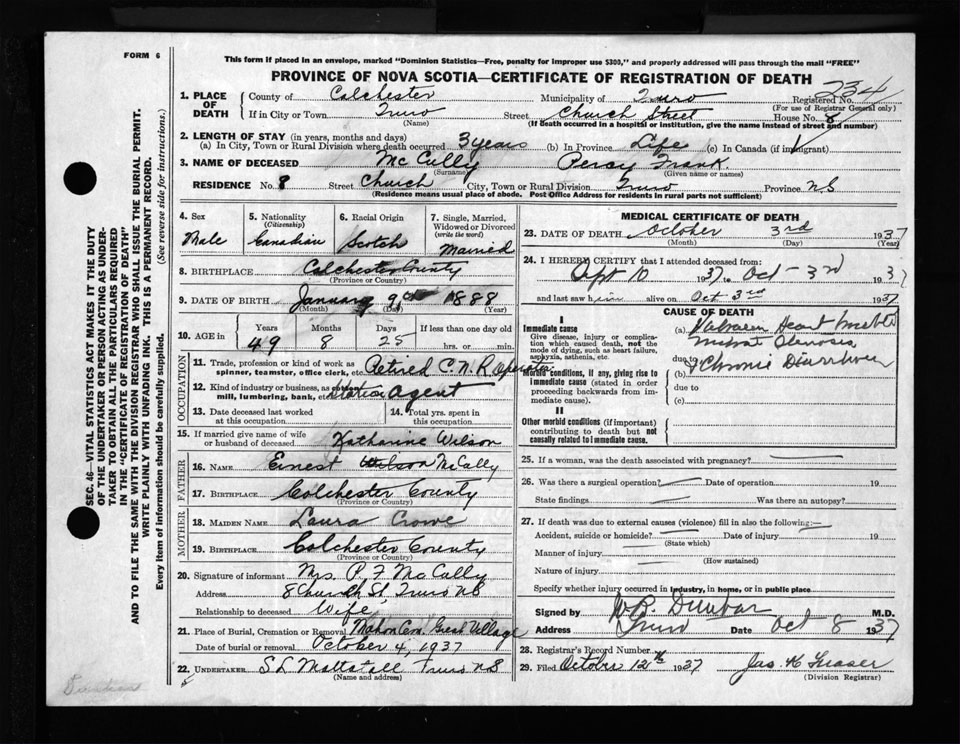 FORM 6
This form if placed in an envelope, marked "Dominion Statistics—Free, penalty for improper use $300," and properly addressed will pass through the mail "FREE"
PROVINCE OF NOVA SCOTIA—CERTIFICATE OF REGISTRATION OF DEATH
1. PLACE OF DEATH County of Colchester Municipality of Truro Registered No. 234
(For use of Registrar General only)
If in City or Town Truro Street Church Street House No. 8
(Name) (If death occurred in a hospital or institution, give the name instead of street and number)
2. LENGTH OF STAY (in years, months and days)
(a) In City, Town or Rural Division where death occurred 3 years (b) In Province Life (c) In Canada (if immigrant)
3. NAME OF DECEASED McCully Percy Frank
(Surname) (Given name or names)
RESIDENCE No. 8 Street Church City, Town or Rural Division Truro Province N.S
(Residence means usual place of abode. Post Office Address for residents in rural parts not sufficient)
4. Sex 5. Nationality 6. Racial Origin 7. Single, Married, Widowed or Divorced
(Citizenship) (write the word)
Male Canadian Scotch Married
8. BIRTHPLACE Colchester County
(Province or Country)
9. DATE OF BIRTH January 9 1888
(Month) (Day) (Year)
10. AGE in Years Months Days If less than one day old
49 8 25 hrs. or min.
OCCUPATION
11. Trade, profession or kind of work as spinner, teamster, office clerk, etc. Retired C.N.R Operator
12. Kind of industry or business, as cotton mill, lumbering, bank, etc. Station Agent
13. Date deceased last worked at this occupation 14. Total yrs. spent in this occupation
15. If married give name of wife or husband of deceased Katharine Wilson
FATHER
16. NAME Ernest Wilson McCully
17. BIRTHPLACE Colchester County
(Province or Country)
MOTHER
18. MAIDEN NAME Laura Crowe
19. BIRTHPLACE Colchester County
(Province or Country)
20. Signature of informant Mrs. P. F McCully
Address 8 Church St. Truro NS
Relationship to deceased Wife
21. Place of Burial, Cremation or Removal Mahon Cem. Great Village
Date of burial or removal October 4, 1937
22. UNDERTAKER S L Mattatall Truro NS
(Name and address)
MEDICAL CERTIFICATE OF DEATH
23. DATE OF DEATH October 3rd 1937
(Month) (Day) (Year)
24. I HEREBY CERTIFY that I attended deceased from:
Sept 10 1937 to Oct - 3rd 1937
and last saw him alive on Oct 3rd 1937
CAUSE OF DEATH
I
Immediate cause
Give disease, injury or complication which caused death, not the mode of dying, such as heart failure, asphyxia, asthenia, etc.
(a) Heart
Stenosis
due to
Morbid conditions, if any, giving rise to immediate cause (stated in order proceeding backwards from immediate cause).
(b) Chronic Diarrhoea
due to
(c)
II
Other morbid conditions (if important) contributing to death but not causally related to immediate cause.
25. If a woman, was the death associated with pregnancy?
26. Was there a surgical operation? Date of operation 19
State findings Was there an autopsy?
27. If death was due to external causes (violence) fill in also the following:—
Accident, suicide or homicide? Date of injury 19
(State which)
Manner of injury
(How sustained)
Nature of injury
Specify whether injury occurred in industry, in home, or in public place
Signed by W.R. Dunbar M.D.
Address Truro Date Oct 8 1937
28. Registrar's Record Number
29. Filed October 12th 1937 Jas. H Fraser
(Division Registrar)
SEC. 46—VITAL STATISTICS ACT MAKES IT THE DUTY
OF THE UNDERTAKER OR PERSON ACTING AS UNDER-
TAKER TO OBTAIN ALL THE PARTICULARS REQUIRED
IN THE "CERTIFICATE OF REGISTRATION OF DEATH"
AND TO FILE THE SAME WITH THE DIVISION REGISTRAR WHO SHALL ISSUE THE BURIAL PERMIT.
WRITE PLAINLY WITH UNFADING INK. THIS IS A PERMANENT RECORD.
Every item of information should be carefully supplied. (See reverse side for instructions.)